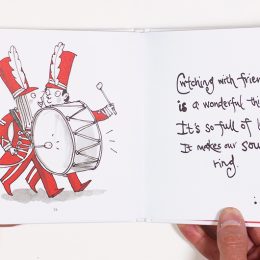 Cwtching with
is a wonderful
It's so full of
It makes our
ring.